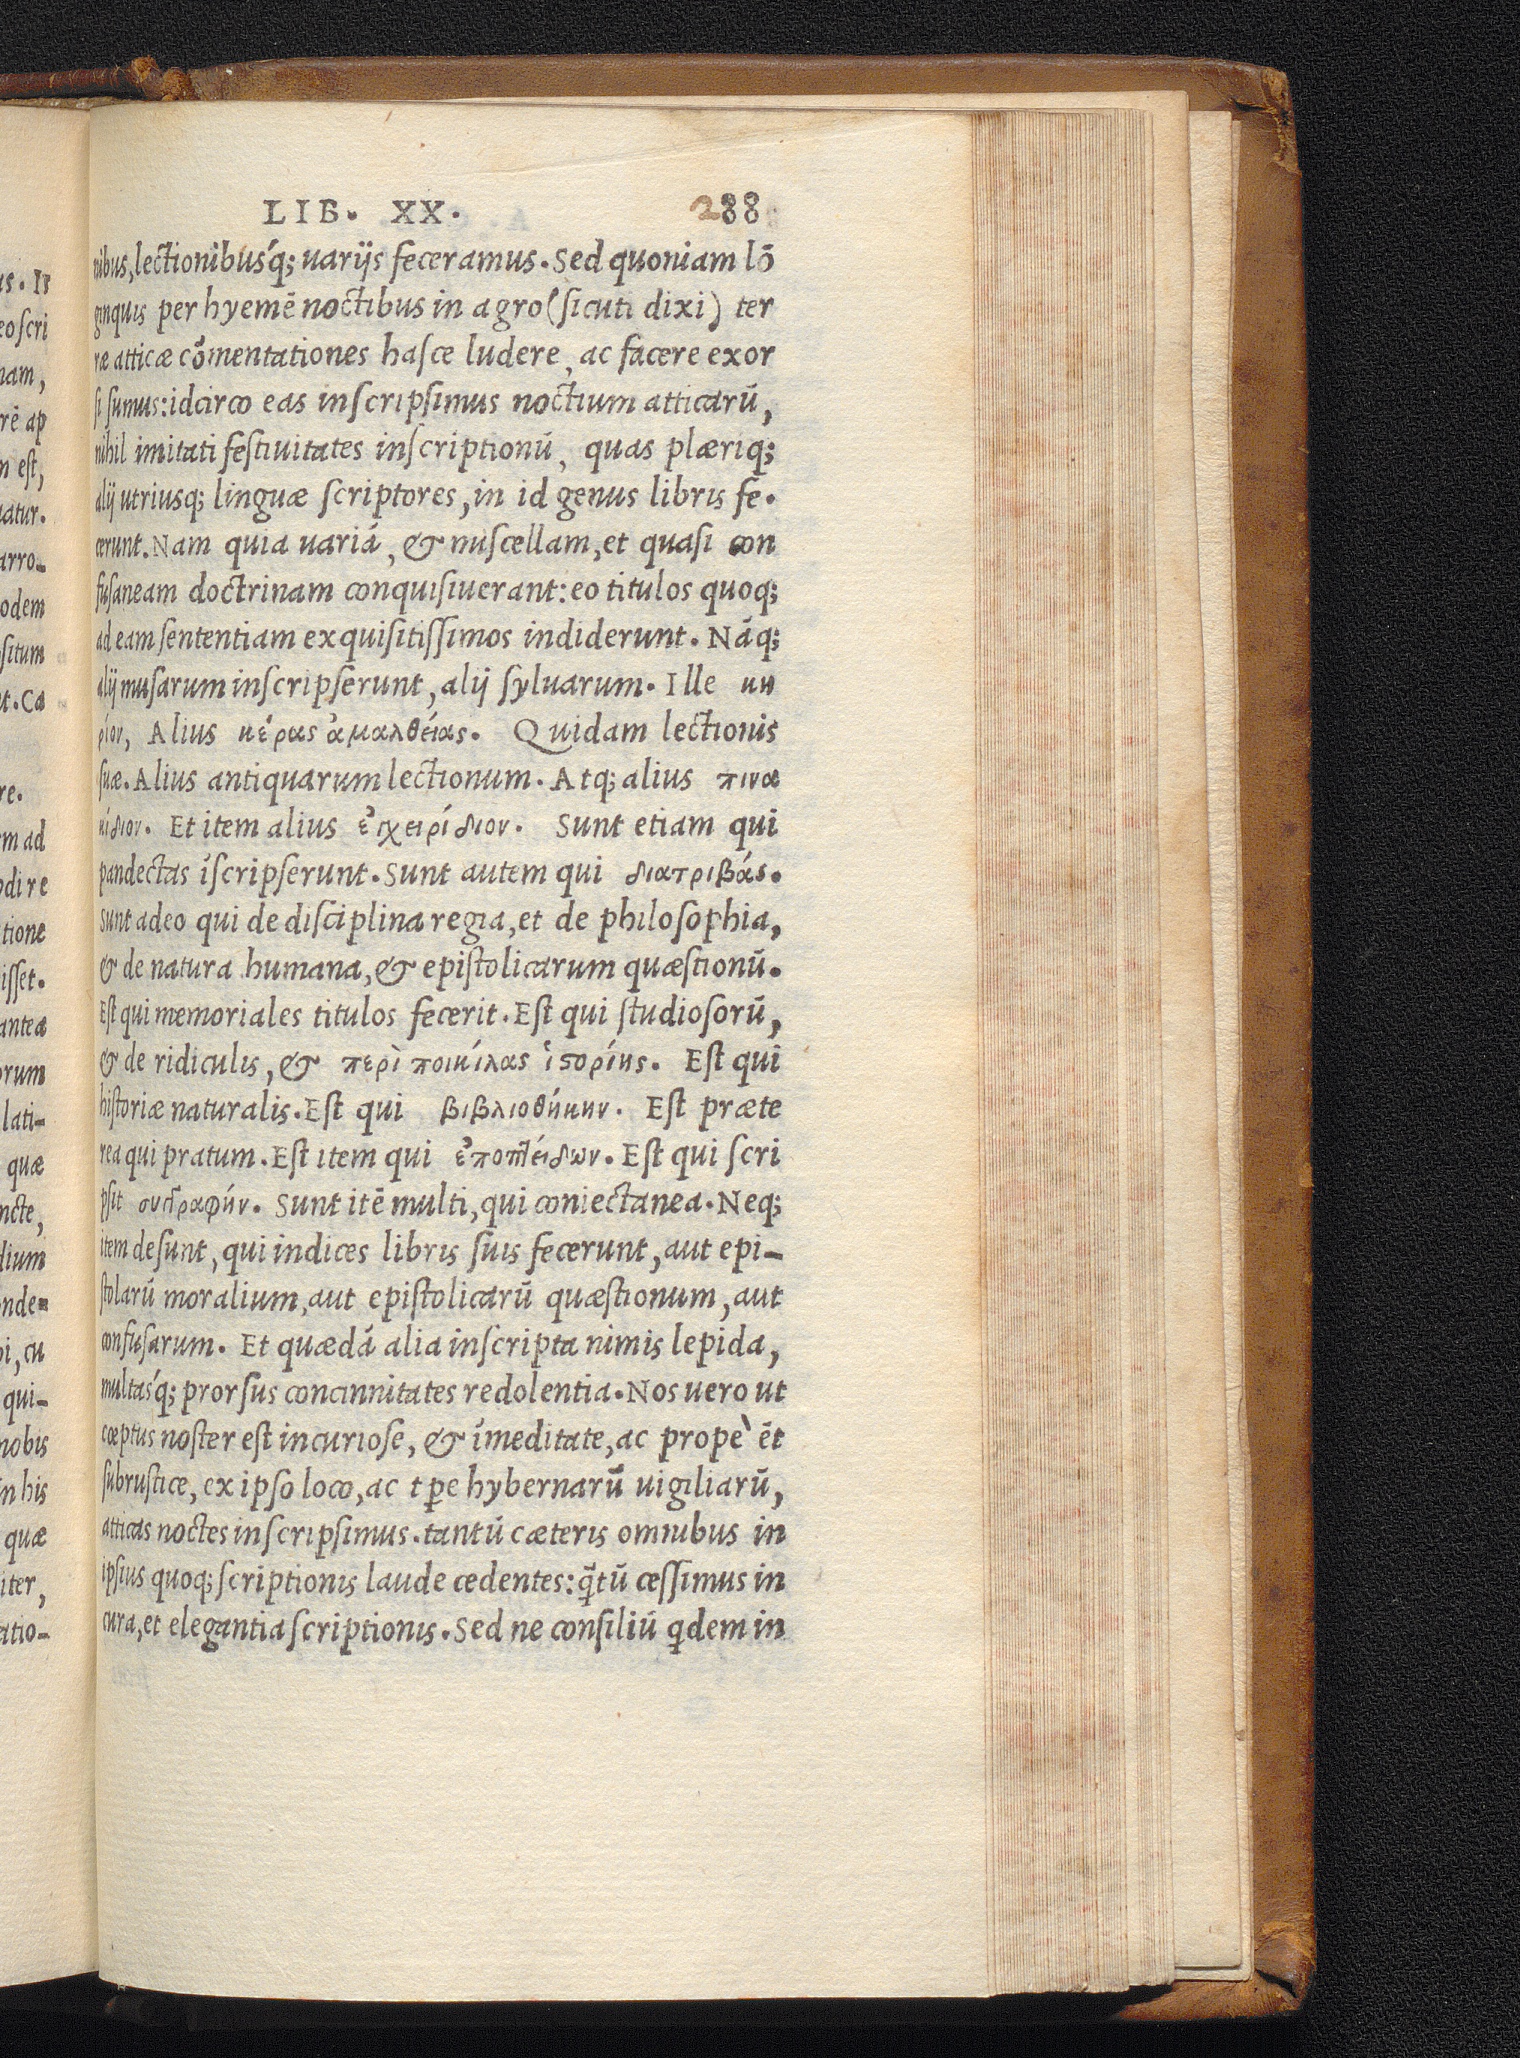 us. Ir
eo scri
nam,
rē ap
n est,
uatur.
arro-
odem
situm
nt. Ca
re.
em ad
odi re
tione
isset.
antea
orum
lati-
quæ
ncte,
dium
onde-
oi, cu
qui-
nobis
in his
quæ
iter,
atio-
LIB. XX. 288
nibus, lectionibusq́; uarijs feceramus. Sed quoniam lō
ginquis per hyemē noctibus in agro (sicuti dixi) ter
ræ atticæ cōmentationes hasce ludere, ac facere exor
si sumus: idcirco eas inscripsimus noctium atticarū,
nihil imitati festiuitates inscriptionū, quas plæriq;
alij utriusq; linguæ scriptores, in id genus libris fe.
cerunt. Nam quia uariā, & miscellam, et quasi con
fusaneam doctrinam conquisiuerant: eo titulos quoq;
ad eam sententiam exquisitissimos indiderunt. Nāq;
alij musarum inscripserunt, alij syluarum. Ille κη
ρίον, Alius κέρας ἀμαλθείας. Quidam lectionis
suæ. Alius antiquarum lectionum. Atq; alius πινα
κίδιον. Et item alius ἐγχειρίδιον. Sunt etiam qui
pandectas īscripserunt. Sunt autem qui διατριβάς.
Sunt adeo qui de disciplina regia, et de philosophia,
& de natura humana, & epistolicarum quæstionū.
Est qui memoriales titulos fecerit. Est qui studiosorū,
& de ridiculis, & περὶ ποικίλας ἱϛορίης. Est qui
historiæ naturalis. Est qui βιβλιοθήκην. Est præte
rea qui pratum. Est item qui ἐποπτείδων. Est qui scri
psit συγγραφήν. Sunt itē multi, qui coniectanea. Neq;
item desunt, qui indices libris suis fecerunt, aut epi-
stolarū moralium, aut epistolicarū quæstionum, aut
confusarum. Et quædā alia inscripta nimis lepida,
multasq́; prorsus concinnitates redolentia. Nos uero ut
cœptus noster est incuriose, & īmeditate, ac propè ēt
subrustice, ex ipso loco, ac tꝑe hybernarū uigiliarū,
atticas noctes inscripsimus. tantū cæteris omnibus in
ipsius quoq; scriptionis laude cedentes: q̄tū cessimus in
cura, et elegantia scriptionis. Sed ne consiliū qdem in